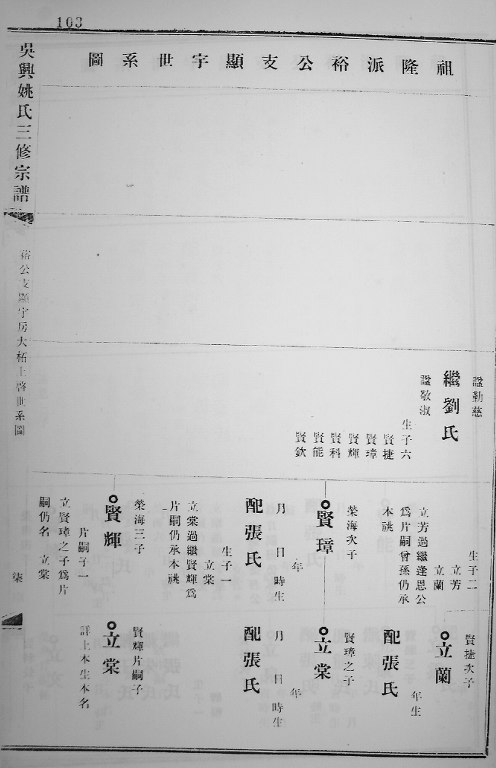 103
祖隆派裕公支顯宇世系圖
諡勤慈
繼劉氏
諡敬淑
生子六
賢捷
賢璋
賢輝
賢科
賢能
賢欽
生子二
立芳
立蘭
立芳過繼逢恩公
為片嗣曾孫仍承
本祧
賢璋
榮海次子
配張氏
年
月 日 時生
生子一
立棠
立棠過繼賢輝爲
片嗣仍承本祧
賢輝
榮海三子
片嗣子一
立賢璋之子爲片
嗣仍名 立棠
賢捷次子
立蘭
年生
配張氏
賢璋之子
立棠
年
月 日 時生
配張氏
賢輝片嗣子
立棠
詳上本生本名
吳興姚氏三修宗譜
裕公支顯宇房大柘上啓世系圖
柒